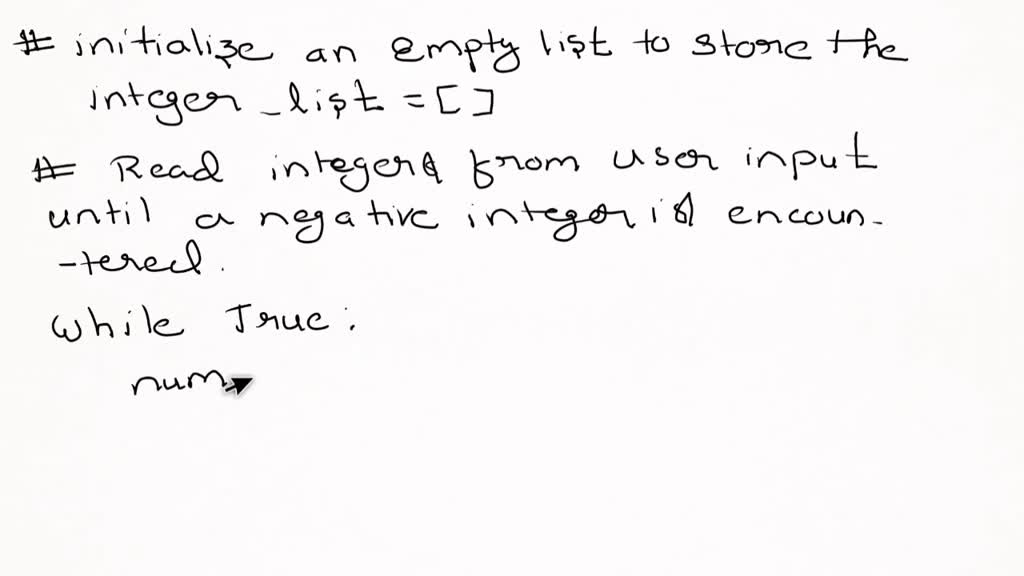 # initialize an empty list to store the
integer_list = []
# Read integers from user input
until a negative integer is encoun-
-tered.
while True:
num